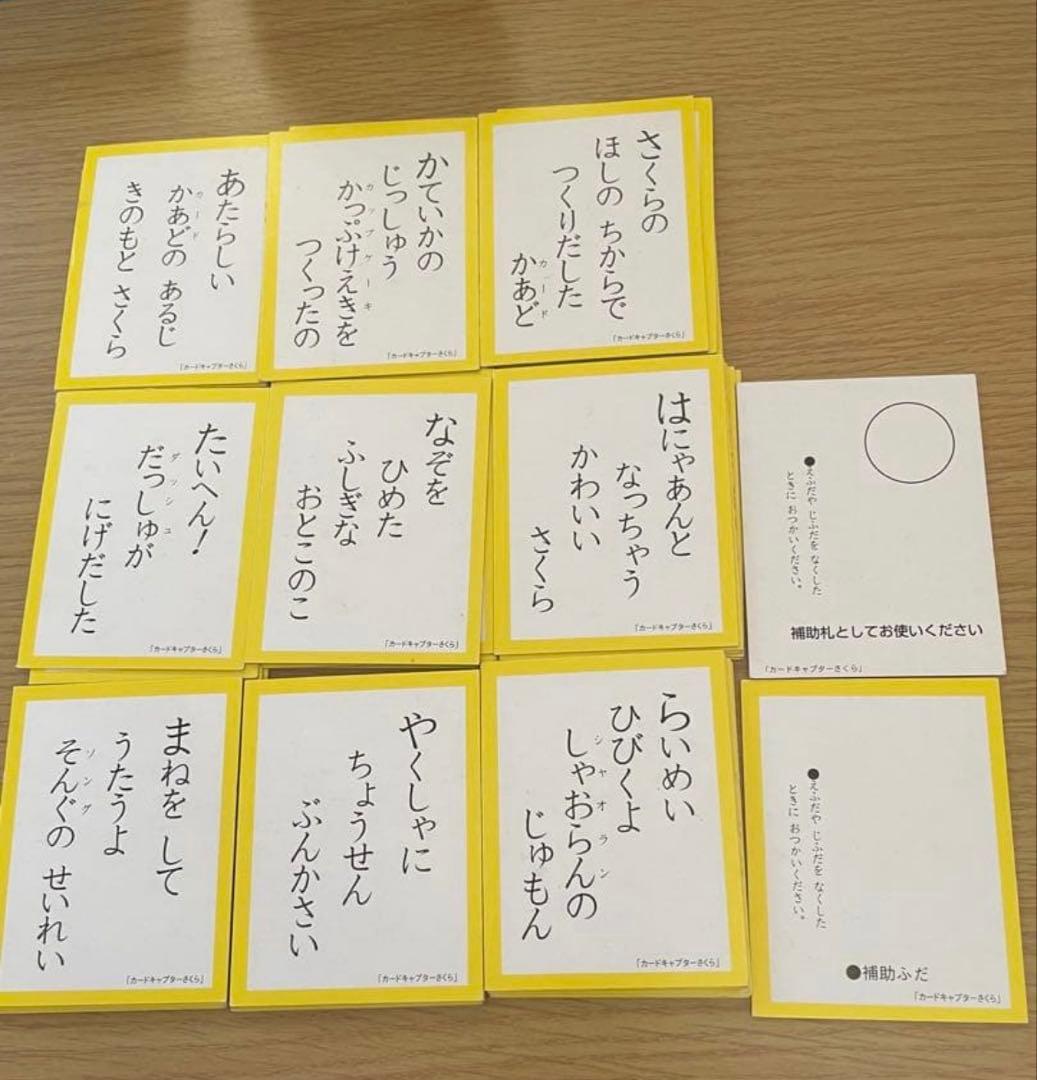 あたらしい
かあどの あるじ
カード
きのもと さくら
「カードキャプターさくら」
かていかの
じっしゅう
かっぷけえきを
カップケーキ
つくったの
「カードキャプターさくら」
さくらの
ほしの ちからで
つくりだした
かあど
カード
「カードキャプターさくら」
たいへん!
だっしゅが
ダッシュ
にげだした
「カードキャプターさくら」
なぞを
ひめた
ふしぎな
おとこのこ
「カードキャプターさくら」
はにゃあんと
なっちゃう
かわいい
さくら
「カードキャプターさくら」
●えふだや じふだを なくした
ときに おつかいください。
補助札としてお使いください
「カードキャプターさくら」
まねを して
うたうよ
そんぐの せいれい
ソング
「カードキャプターさくら」
やくしゃに
ちょうせん
ぶんかさい
「カードキャプターさくら」
らいめい
ひびくよ
しゃおらんの
シャオラン
じゅもん
「カードキャプターさくら」
●えふだや じふだを なくした
ときに おつかいください。
●補助ふだ
「カードキャプターさくら」